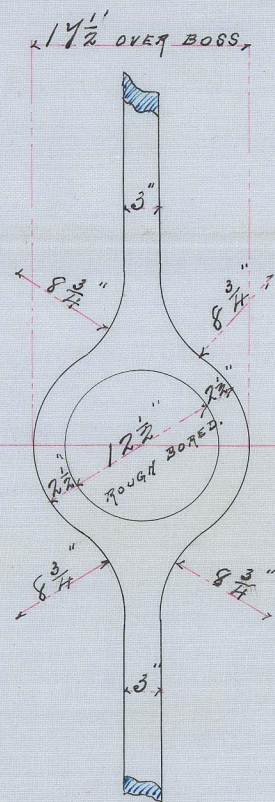 17 1/2" OVER BOSS
3"
8 3/4"
8 3/4"
2 1/2"
12 1/2"
ROUGH BORED.
2 1/2"
8 3/4"
8 3/4"
3"